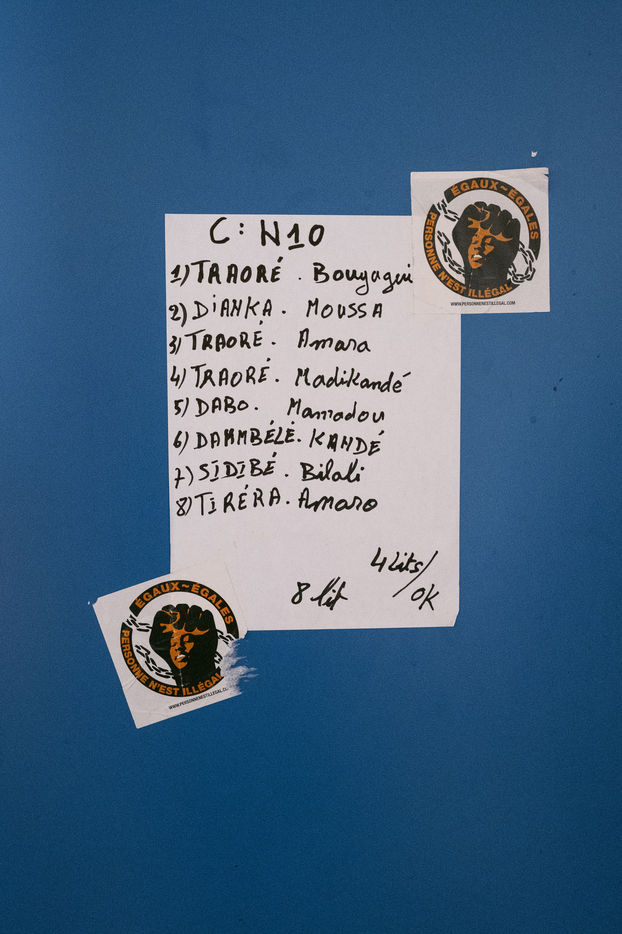 ÉGAUX~ÉGALES
PERSONNE N'EST ILLÉGAL
WWW.PERSONNENESTILLEGAL.COM
C: N10
1) TRAORÉ . Bouyagui
2) DIANKA . MOUSSA
3) TRAORÉ . Amara
4) TRAORÉ . Madikandé
5) DABO . Mamadou
6) DAMMBÉLÉ . KANDÉ
7) SIDIBÉ . Bilali
8) TIRÉRA . Amaro
4 Lits/
8 lit OK
ÉGAUX~ÉGALES
PERSONNE N'EST ILLÉGAL
WWW.PERSONNENESTILLEGAL.C